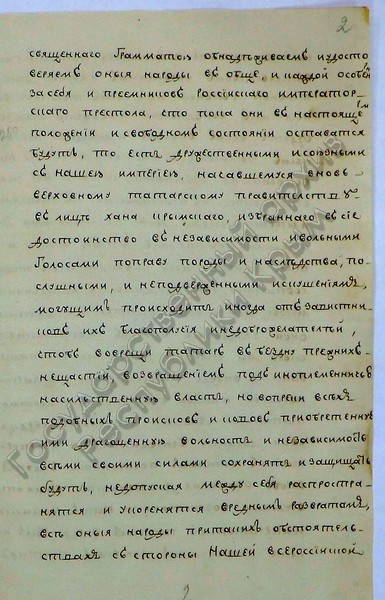 2
священнаго Грамматою обнадѣживаемъ и удосто
веряемъ оныя народы въ обще, и каждой особен
за себя и преемниковъ Россійскаго император-
скаго престола, что пока они въ настояще
положеніи и свободномъ состояніи оставатся
будутъ, то есть дружественными и союзными
съ нашею имперіею, касавшемуся вновь
верховному татарскому правительству
въ лицѣ хана крымскаго, избраннаго въ сіе
достоинство въ независимости и вольными
Голосами по праву породы и наследства, по-
слушными, и неподверженными искушеніямъ,
могущимъ происходить иногда отъ завистни-
ковъ ихъ благополучія и недоброжелателей,
чтобъ вовреши татаръ въ бездну прежнихъ
нещастій, возвращеніемъ подъ иноплеменническую
насильственную власть, но вопреки всѣхъ
подобныхъ происковъ и кововъ приобретенную
ими драгоценную вольность и независимость
всѣми своими силами сохранять и защищать
будутъ, недопуская между себя распростра-
нятся и укоренятся вреднымъ развратамъ,
всѣ оныя народы при такихъ обстоятель-
ствахъ съ стороны Нашей всероссійской
Государственный архив
Республики Крым